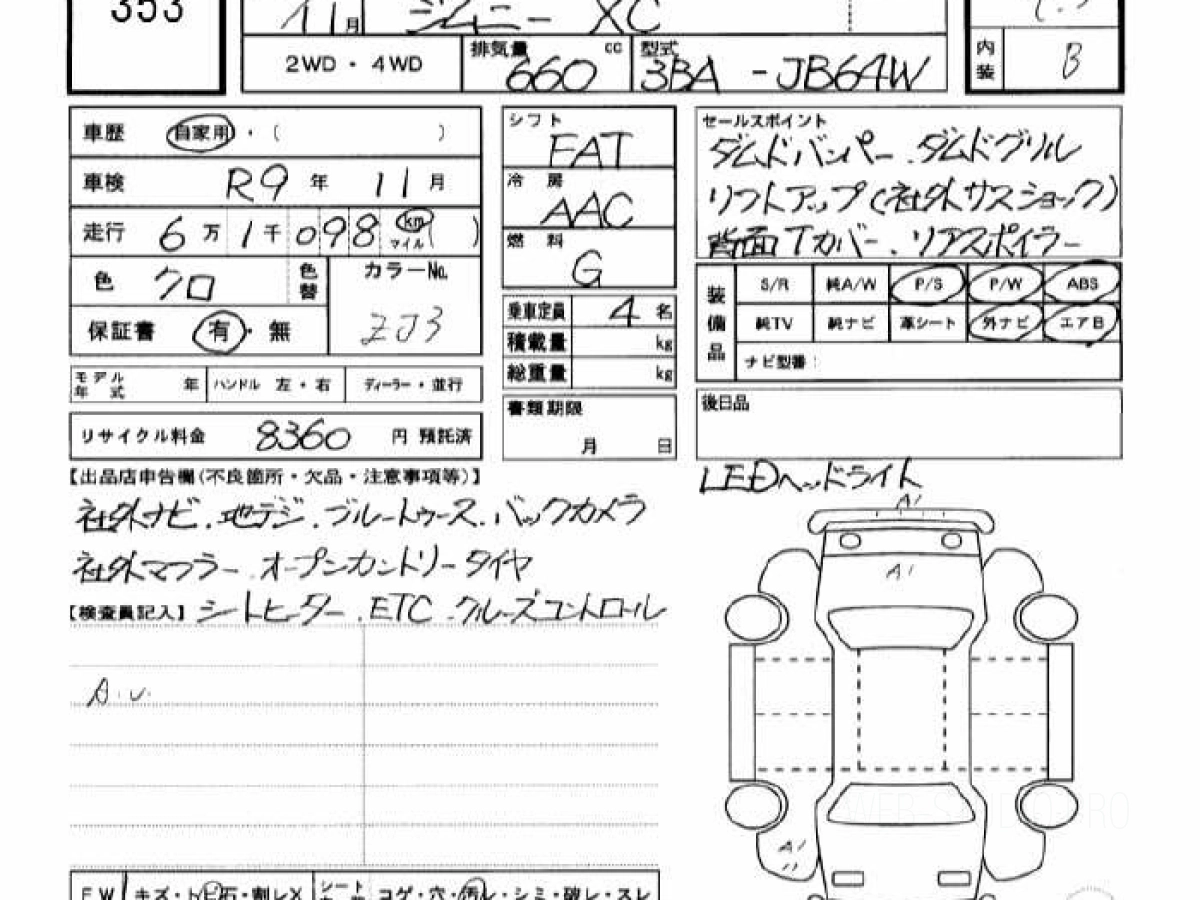 353
11月 ジムニー XC
2WD・4WD 排気量 660 cc 型式 3BA-JB64W
内装 B
車歴 自家用・( )
車検 R9年 11月
走行 6万1千098 km マイル ( )
色 クロ 色替 カラーNo. ZJ3
保証書 有・無
モデル年式 年 ハンドル 左・右 ディーラー・並行
リサイクル料金 8360 円 預託済
シフト FAT
冷房 AAC
燃料 G
乗車定員 4名
積載量 kg
総重量 kg
書類期限
月 日
セールスポイント
ダムドバンパー.ダムドグリル
リフトアップ(社外サスショック)
背面Tカバー.リアスポイラー
装備品 S/R 純A/W P/S P/W ABS
純TV 純ナビ 革シート 外ナビ エアB
ナビ型番:
後日品
LEDヘッドライト
【出品店申告欄(不良箇所・欠品・注意事項等)】
社外ナビ.地デジ.ブルートゥース.バックカメラ
社外マフラー.オープンカントリータイヤ
【検査員記入】シートヒーター.ETC.クルーズコントロール
A.U.
A1
A1
A1
WEB-S
RO
FW キズ・トビ石・割レX シート コゲ・穴・汚レ・シミ・破レ・スレ